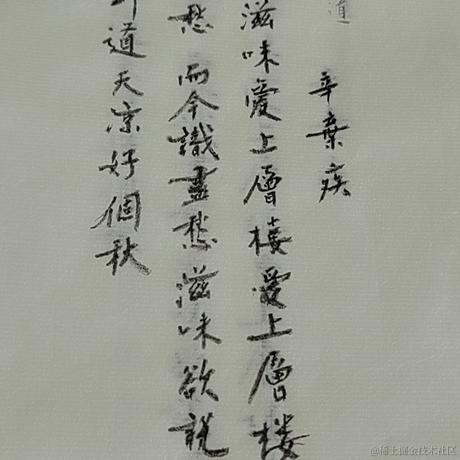 道
辛棄疾
滋味愛上層樓愛上層楼
愁而今識盡愁滋味欲説
道天凉好個秋
@稀土掘金技术社区